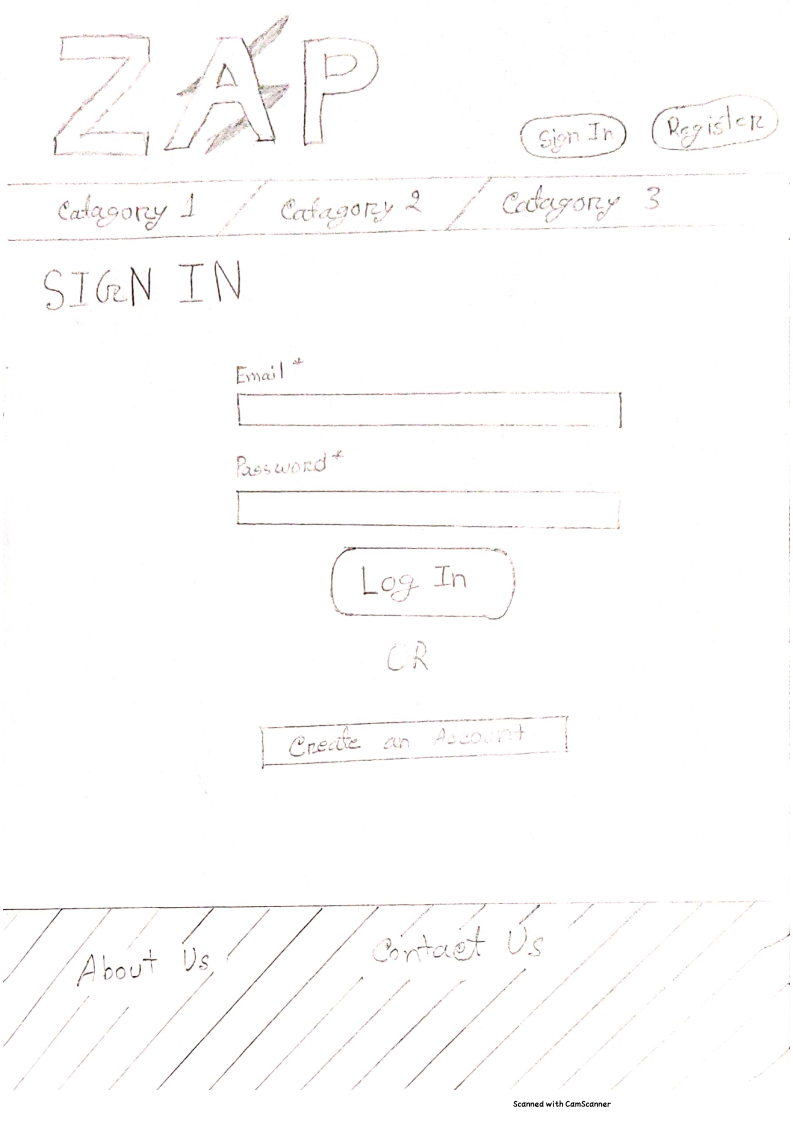 ZAP
Sign In Register
Catagory 1 / Catagory 2 / Catagory 3
SIGN IN
Email *
Password *
Log In
OR
Create an Account
About Us Contact Us
Scanned with CamScanner